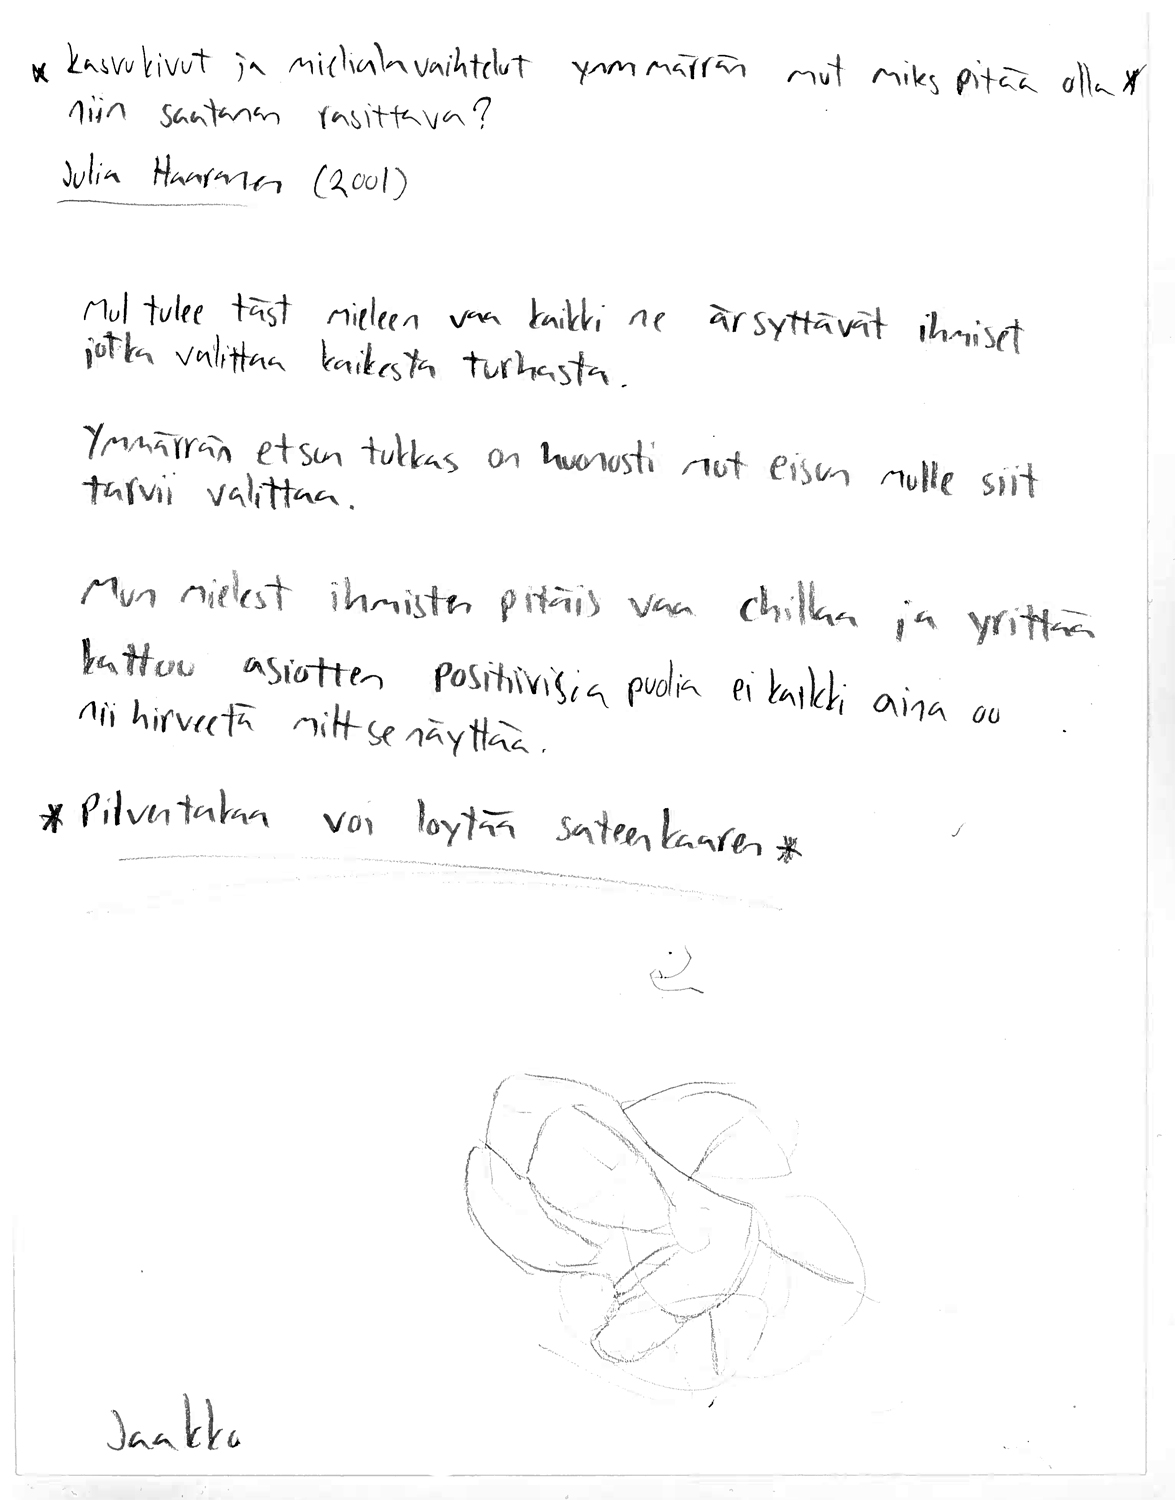 * Kasvukivut ja mielialavaihtelut ymmärrän mut miks pitää olla *
niin saatanan rasittava?
Julia Haaranen (2001)
Mul tulee täst mieleen vaa kaikki ne ärsyttävät ihmiset
jotka valittaa kaikesta turhasta.
Ymmärrän etsun tukkas on huonosti mut eisun mulle siit
tarvii valittaa.
Mun mielest ihmisten pitäis vaa chillaa ja yrittää
kattoo asiotten positiivisia puolia ei kaikki aina oo
nii hirveetä milt se näyttää.
* Pilventakaa voi löytää sateenkaaren *
Jaakko